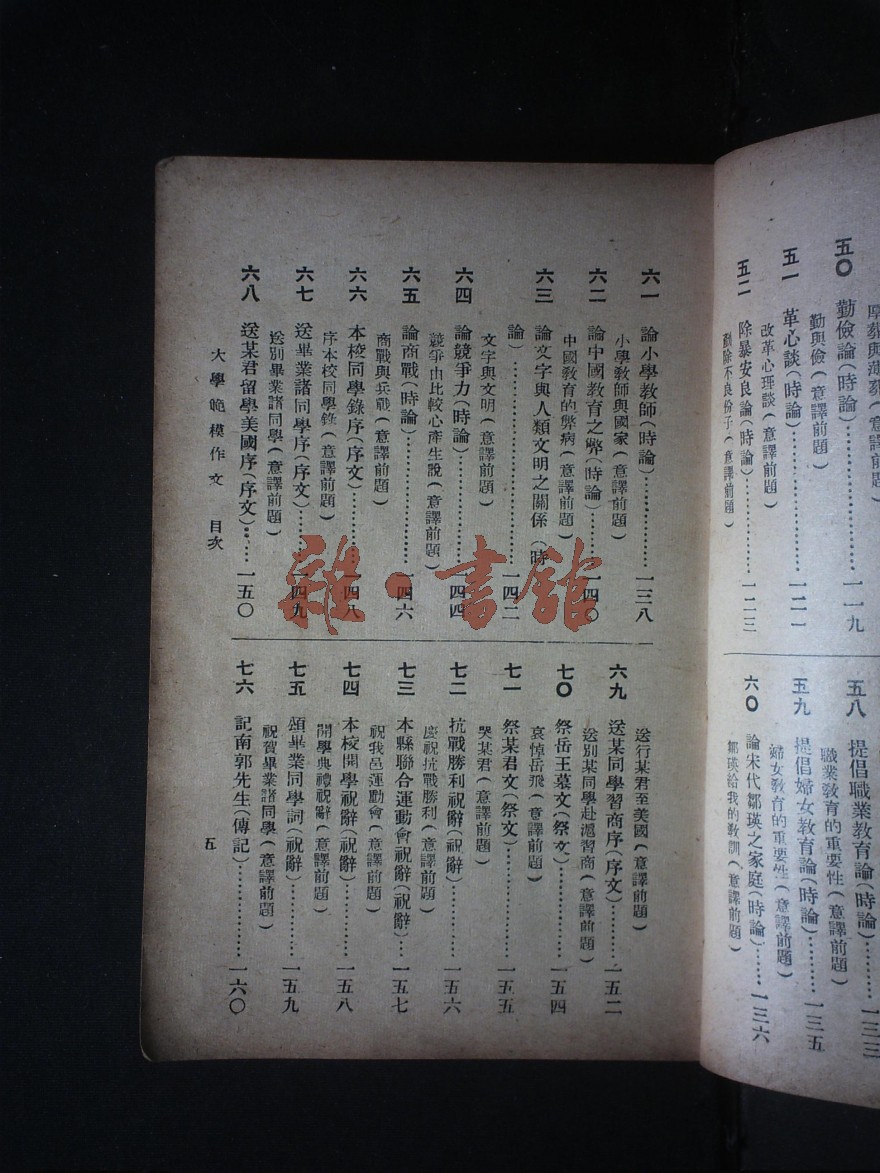 障葬與薄葬（意譯前題）
五〇 勤儉論（時論）…………一一九
勤與儉（意譯前題）
五一 革心談（時論）…………一二一
改革心理談（意譯前題）
五二 除暴安良論（時論）…………一二三
剷除不良份子（意譯前題）
五八 提倡職業教育論（時論）……一三三
職業教育的重要性（意譯前題）
五九 提倡婦女教育論（時論）……一三五
婦女敎育的重要性（意譯前題）
六〇 論宋代鄒瑛之家庭（時論）……一三六
鄒瑛給我的教訓（意譯前題）
六一 論小學教師（時論）…………一三八
小學敎師與國家（意譯前題）
六二 論中國教育之弊（時論）……一四〇
中國敎育的弊病（意譯前題）
六三 論文字與人類文明之關係（時
論）…………一四二
文字與文明（意譯前題）
六四 論競爭力（時論）…………一四四
競爭由比較心產生說（意譯前題）
六五 論商戰（時論）…………一四六
商戰與兵戰（意譯前題）
六六 本校同學錄序（序文）……一四八
序本校同學錄（意譯前題）
六七 送畢業諸同學序（序文）……一四九
送別畢業諸同學（意譯前題）
六八 送某君留學美國序（序文）……一五〇
送行某君至美國（意譯前題）
六九 送某同學習商序（序文）……一五二
送別某同學赴滬習商（意譯前題）
七〇 祭岳王墓文（祭文）…………一五四
哀悼岳飛（意譯前題）
七一 祭某君文（祭文）…………一五五
哭某君（意譯前題）
七二 抗戰勝利祝辭（祝辭）……一五六
慶祝抗戰勝利（意譯前題）
七三 本縣聯合運動會祝辭（祝辭）…一五七
祝我邑運動會（意譯前題）
七四 本校開學祝辭（祝辭）……一五八
開學典禮祝辭（意譯前題）
七五 頌畢業同學詞（祝辭）……一五九
祝賀畢業諸同學（意譯前題）
七六 記南郭先生（傳記）…………一六〇
大學範模作文 目次
五
雜·書館